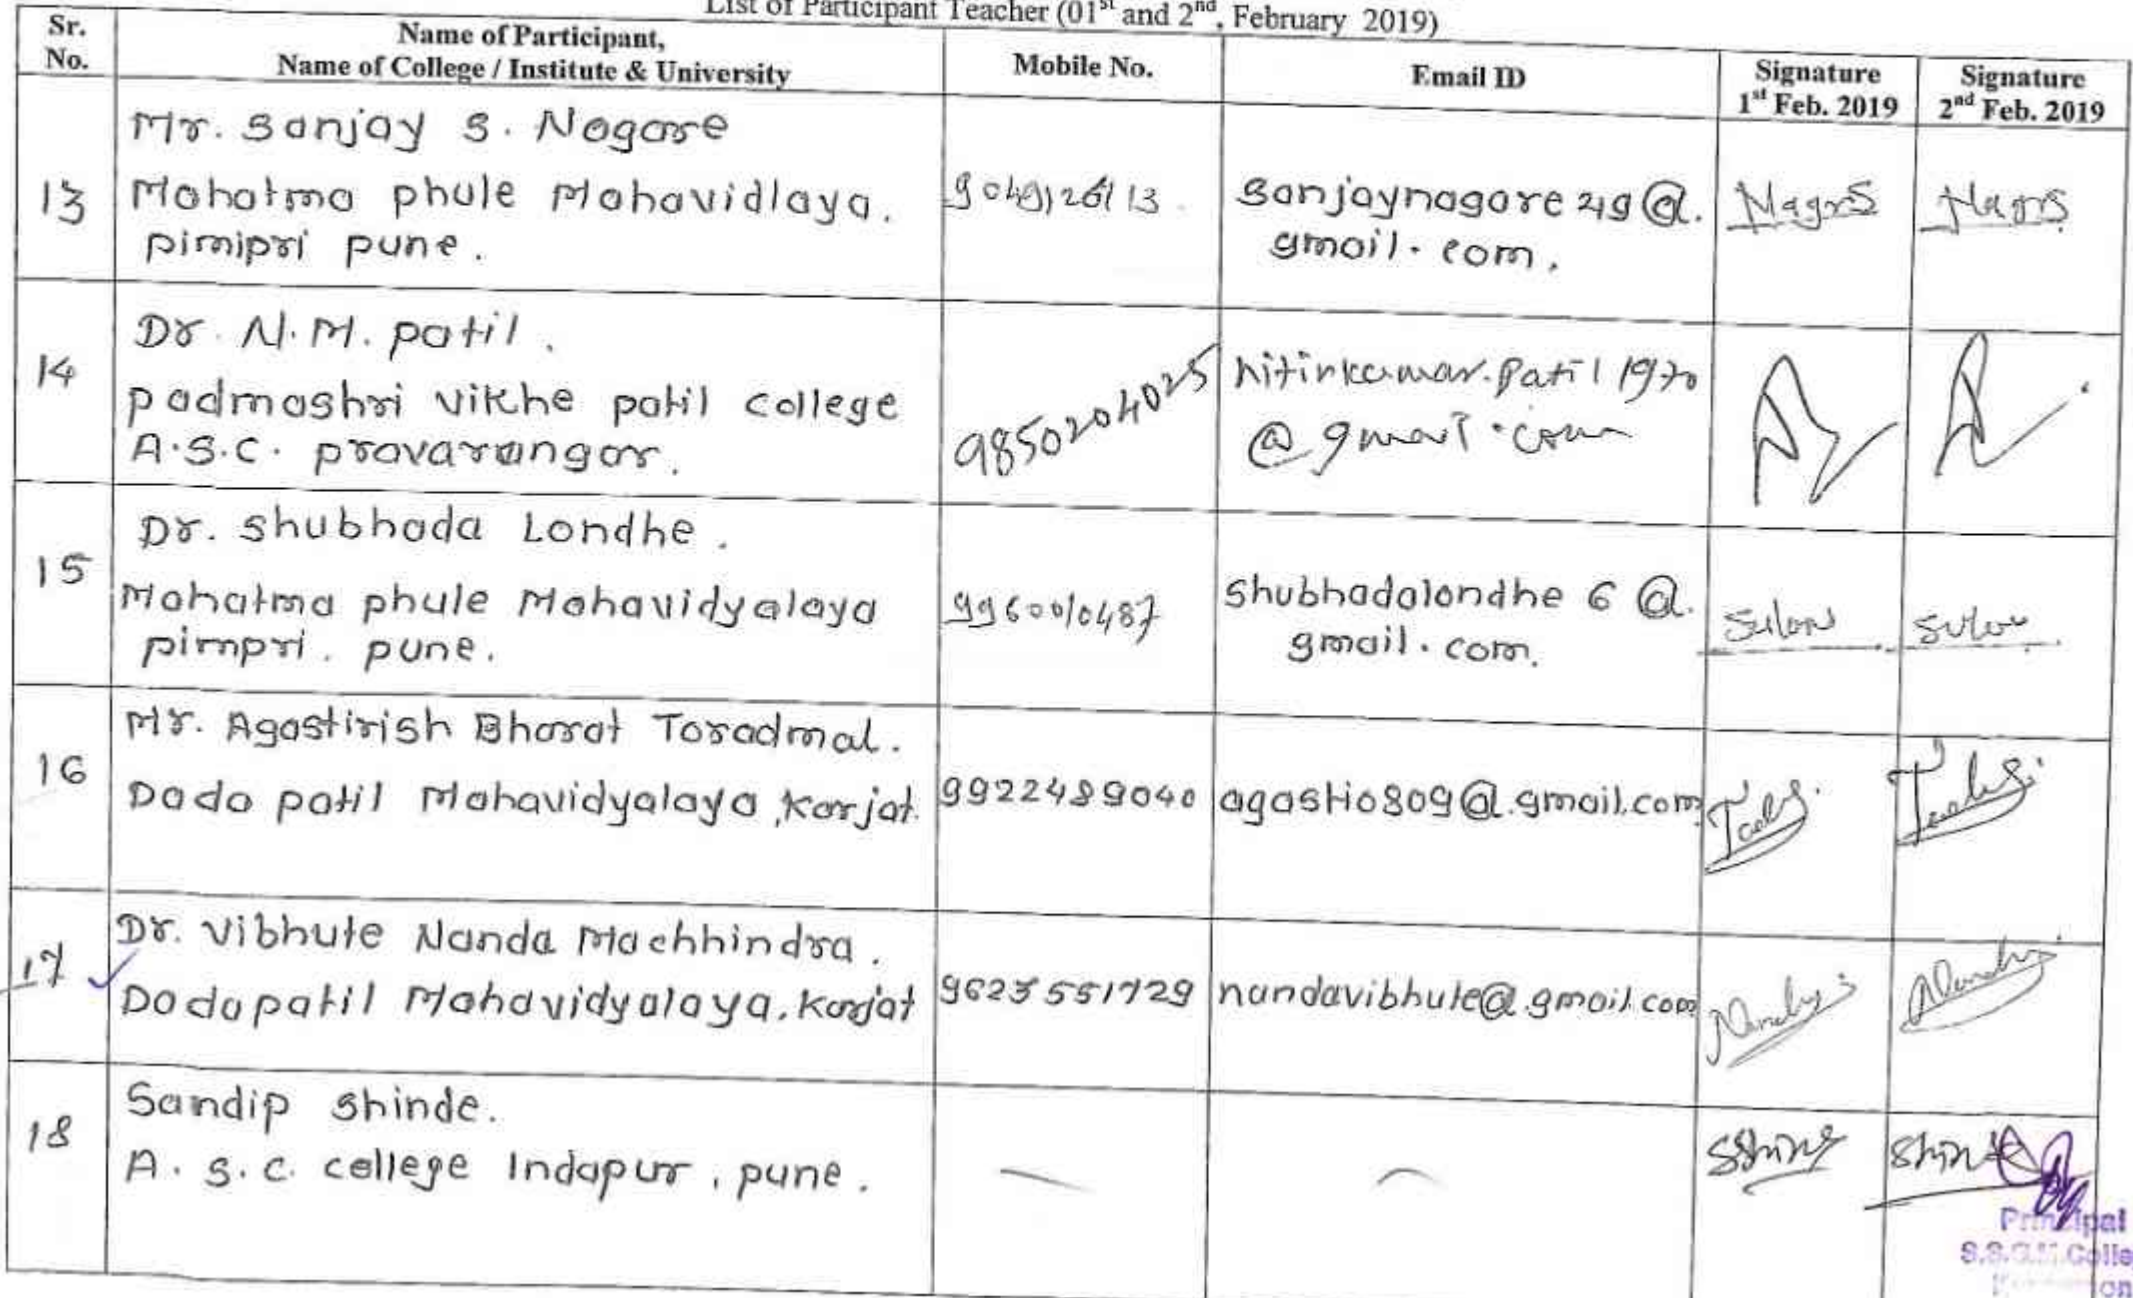 List of Participant Teacher (01st and 2nd, February 2019)
Sr. No.
Name of Participant,
Name of College / Institute & University
Mobile No.
Email ID
Signature
1st Feb. 2019
Signature
2nd Feb. 2019
13
Mr. Sanjay S. Nagare
Mahatma phule Mahavidlaya.
pimipri pune.
9049126113
sanjaynagare249@.
gmail.com.
14
Dr. N.M. patil.
padmashri vikhe patil college
A.S.C. pravarangar.
9850204025
nitinkumar.patil1970
@gmail.com
15
Dr. shubhada Londhe.
Mahatma phule Mahavidyalaya
pimpri. pune.
9960010487
shubhadalondhe 6 @.
gmail.com.
16
Mr. Agastirish Bharat Toradmal.
Dada patil Mahavidyalaya, Karjat.
9922489040
agasti0809@.gmail.com
17
Dr. Vibhute Nanda Machhindra.
Dadapatil Mahavidyalaya, Karjat
9623551729
nandavibhute@.gmail.com
18
Sandip shinde.
A. S. C. college Indapur, pune.
Principal
S.S.G.M. Colle